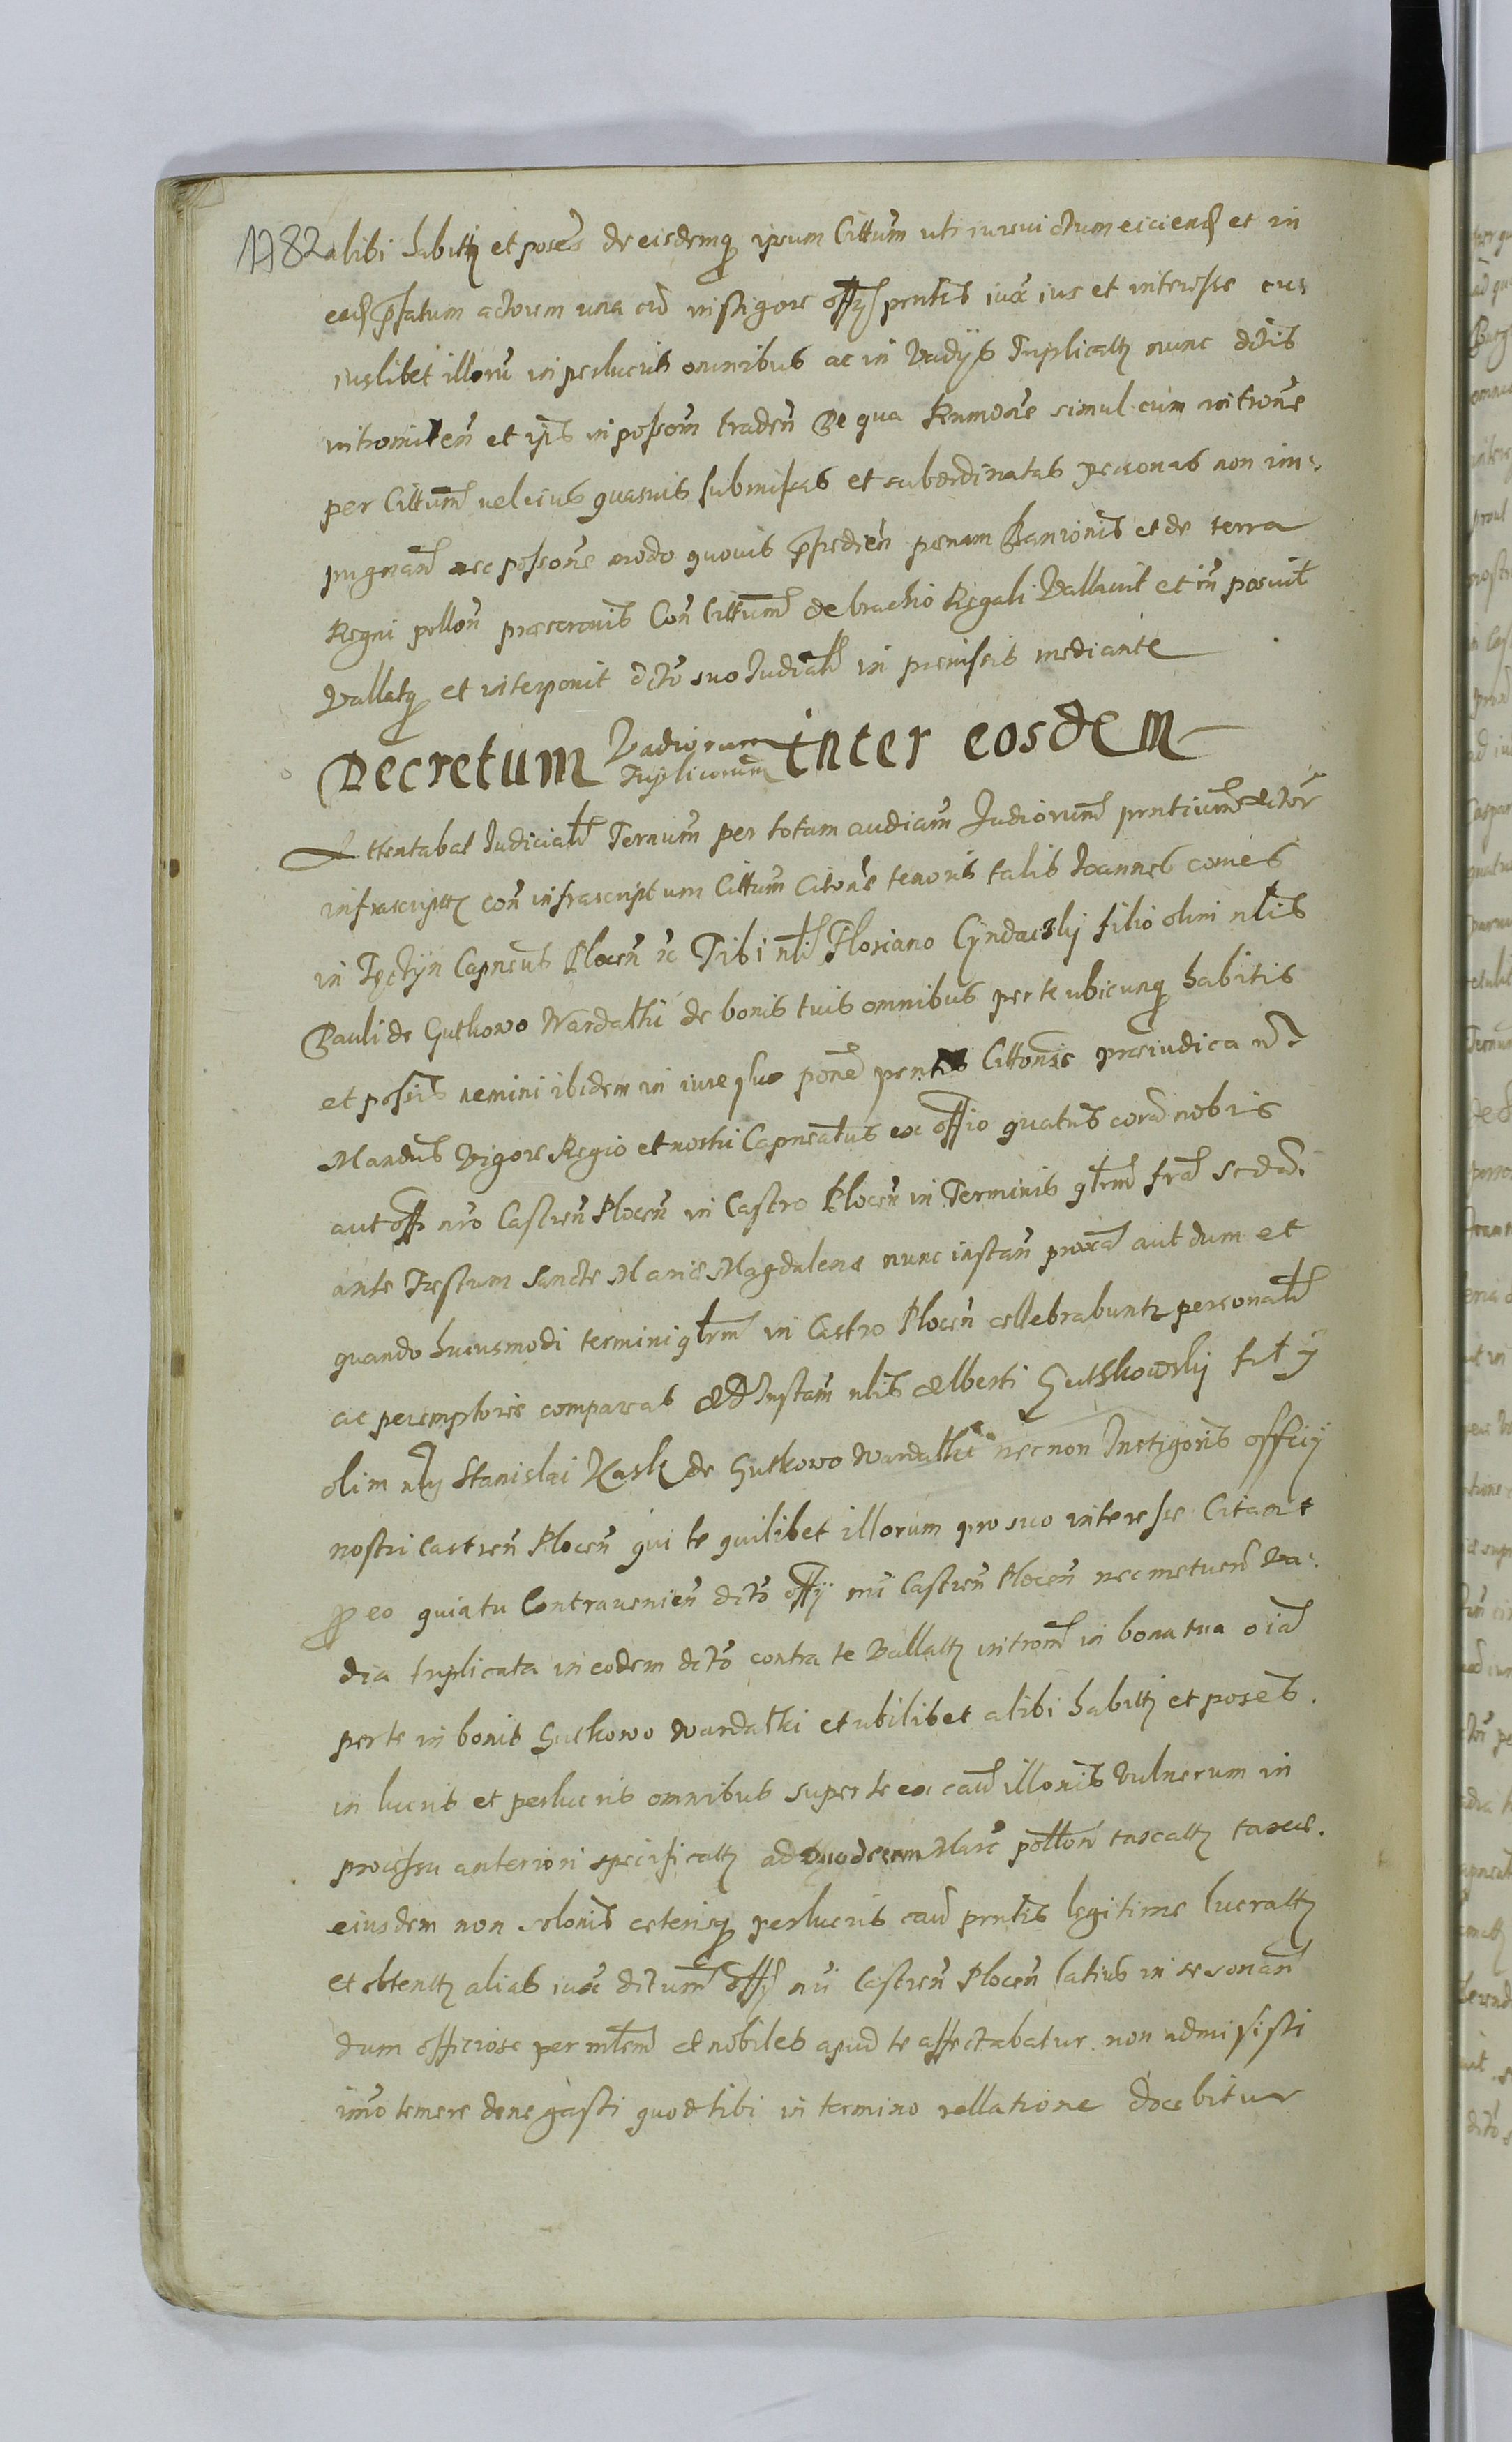 1782 alibi habittz et posess de eisdemq ipsum Cittum uti iureuictum eiciend et in
ead pfatum actorem una cu instigore offy pntis iux ius et interesse cu⸗
iuslibet illoru in perlucris omnibus ac in Vadys Triplicattz nunc dctis
intromitten et ipis in possom traden De qua Rumoone simul cum introne
per Cittum uel eius quasuis submissas et subordinatas personas non im⸗
pugnand nec possone modo quouis pfredien penam Bannionis et de terra
Regni pollon proscronis Con Cittum de brachio Regali Vallauit et in posuit
Vallatq et interponit dcto suo Iudiali in premissis mediante
Decretum Vadiorum Triplicorum inter eosdem
Attentabat Iudicialr Ternum per totam audiam Iudiorum pntium actor
infrascriptz con infrascriptum Cittum Citone tenoris talis Ioannes comes
in Tęczyn Capneus Plocen &c Tibi nli Floriano Cyndaczky filio olim nlis
Pauli de Gutkowo Wardathi de bonis tuis omnibus per te ubicunq habitis
et possis nemini ibidem in iure suo pone pntis Cittonis preiudican
Mandus Vigore Regio et nostri Capneatus ex offio quatus cora nobis
aut offi nro Castren Plocen in Castro Plocen in Terminis qlrm fra 2da
ante Festum Sancte Marie Magdalene nunc instan proxa aut dum et
quando huiusmodi termini qlrm in Castro Plocen cellebrabuntr personalr
ac peremptorie compareas Ad Instam nlis Alberti Gutkowsky fily
olim nly Stanislai Kask de Gutkowo Wardathi necnon Instigoris officy
nostri Castren Plocen qui te quilibet illorum pro suo interesse Citant
p eo quia tu Contrauenien dcto offy nri Castren Plocen nec metuend Va⸗
dia triplicata in eodem dcto contra te Vallattz introm in bona tua oia
per te in bonis Gutkowo Wardathi et ubilibet alibi habittz et poses
in lucris et perlucris omnibus super te ex cau illonis Vulnerum in
processu anteriori specificattz ad duodecem Marc pollon taxcattz taxae
eiusdem non solonis ceterisq perlucris cau pntis legitime lucrattz
et obtentz alias iux dctum offy nri Castren Plocen latius in se sonan
dum officiose per mlem et nobiles apud te affectabatur non admisisti
imo temere denegasti quod tibi in termino rellatione docebitur